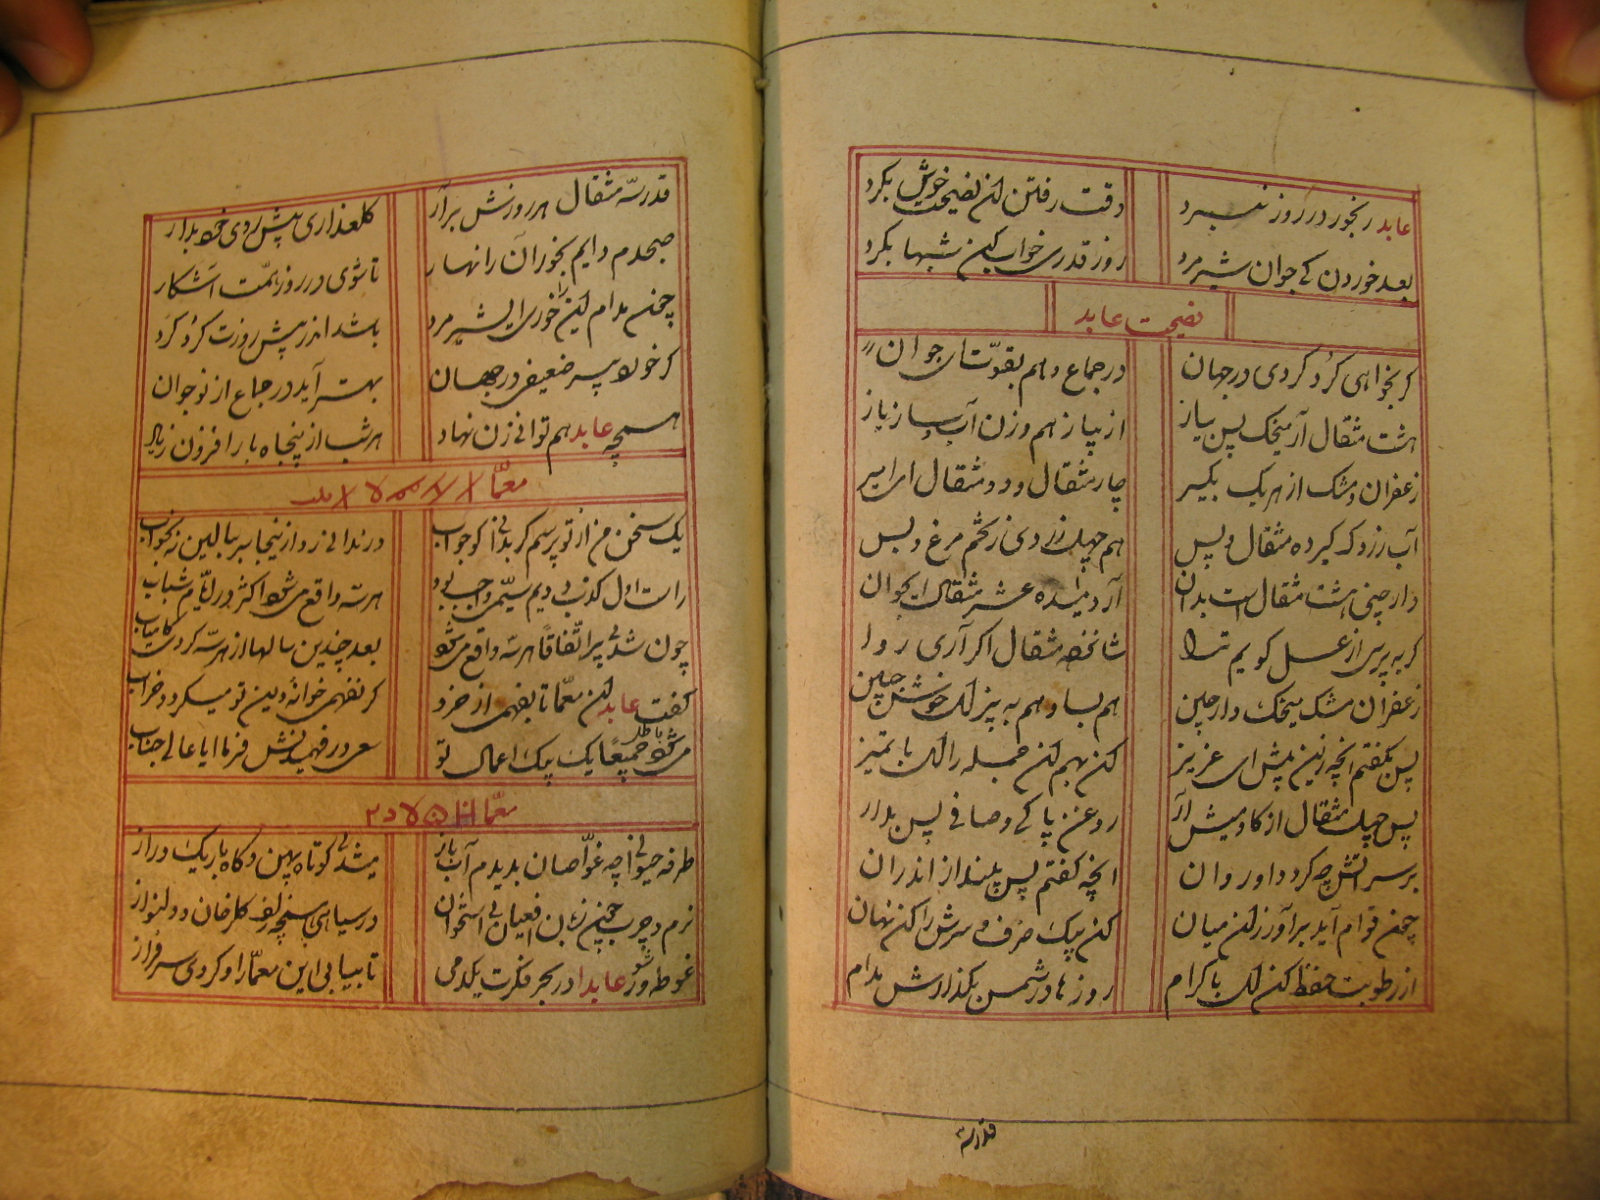 عابد رنجور در روز نبرد
وقت رفتن این نصیحت خویش بکرد
بعد خوردن کے جوان شیر مرد
روز قدری خواب کن شبها بکرد
نصیحت عابد
کر بخواهی کرد کردی در جهان
در جماع و هم بقوت ای جوان
هشت مثقال آر میخک پس بیاز
از پیاز هم وزن آب
زعفران و مشک از هر یک بکیر
چار مثقال و دو مثقال ای امیر
آب زردک کیر ده مثقال و پس
هم چهل زردی ز تخم مرغ و بس
دارچینی هشت مثقال است بدان
آرد میده عشر مثقال ای جوان
کر به پرسی از عسل کویم ترا
شانخصه مثقال اکر آری روا
زعفران مشک میخک دارچین
هم بسا و هم به پز لیک خوش چین
پس بکفتم انچه زین پیش ای عزیز
کن بهم این جمله را لیک با تمیز
پس چهل مثقال از کاومیش آر
روغن پاکے و صافے پس بدار
بر سر آتش چه کرد داور وان
انچه کفتم پس بینداز اندران
چون قوام آید برآور زین میان
کن بیک ظرف و سرش را کن نهان
از رطوبت حفظ کن لیک با کرام
روزها در شمس بکذارش مدام
قدر سه
قدر سه مثقال هر روزش برآر
کلعذاری پیش روی خود بدار
صبحدم دایم بخور آن را نهار
تا شوی در روز همت آشکار
چون مدام این را خوری ای شیر مرد
باشد اندر پیش روزت کرد کرد
کر خورد پیر ضعیفی در جهان
بهتر آید در جماع از نوجوان
همچه عابد هم توانی زن نهاد
هر شب از پنجاه بار افزون زیاد
معما
یک سخن من از تو پرسم کر بدانی کو جواب
در ندانی رو از ینجا سر ببالین نه بخواب
راست اول کذب دویم سیمی واجب بود
هر سه واقع می شود اکثر در ایام شباب
چون شدی پیر اتفاقا هر سه واقع می شود
بعد چندین سالها از هر سه کردی کامیاب
کفت عابد این معما تا بفهمی از خرد
کر نفهمی خوانه دین تو میکردد خراب
می شود باطل جمیعا یک بیک اعمال تو
سعی در فهمیدنش فرما ایا عالے جناب
معما
طرفه حیوانی چه غواصان بدیدم آب باز
میشدی کوتاه پهن و کاه باریک و دراز
نرم و چرب چون زبان افعیان بی استخوان
در سیاهی همچه زلف کلرخان دولنواز
غوطه ور شو عابدا در بحر فکرت یکدمی
تا بیابی این معما را و کردی سرفراز